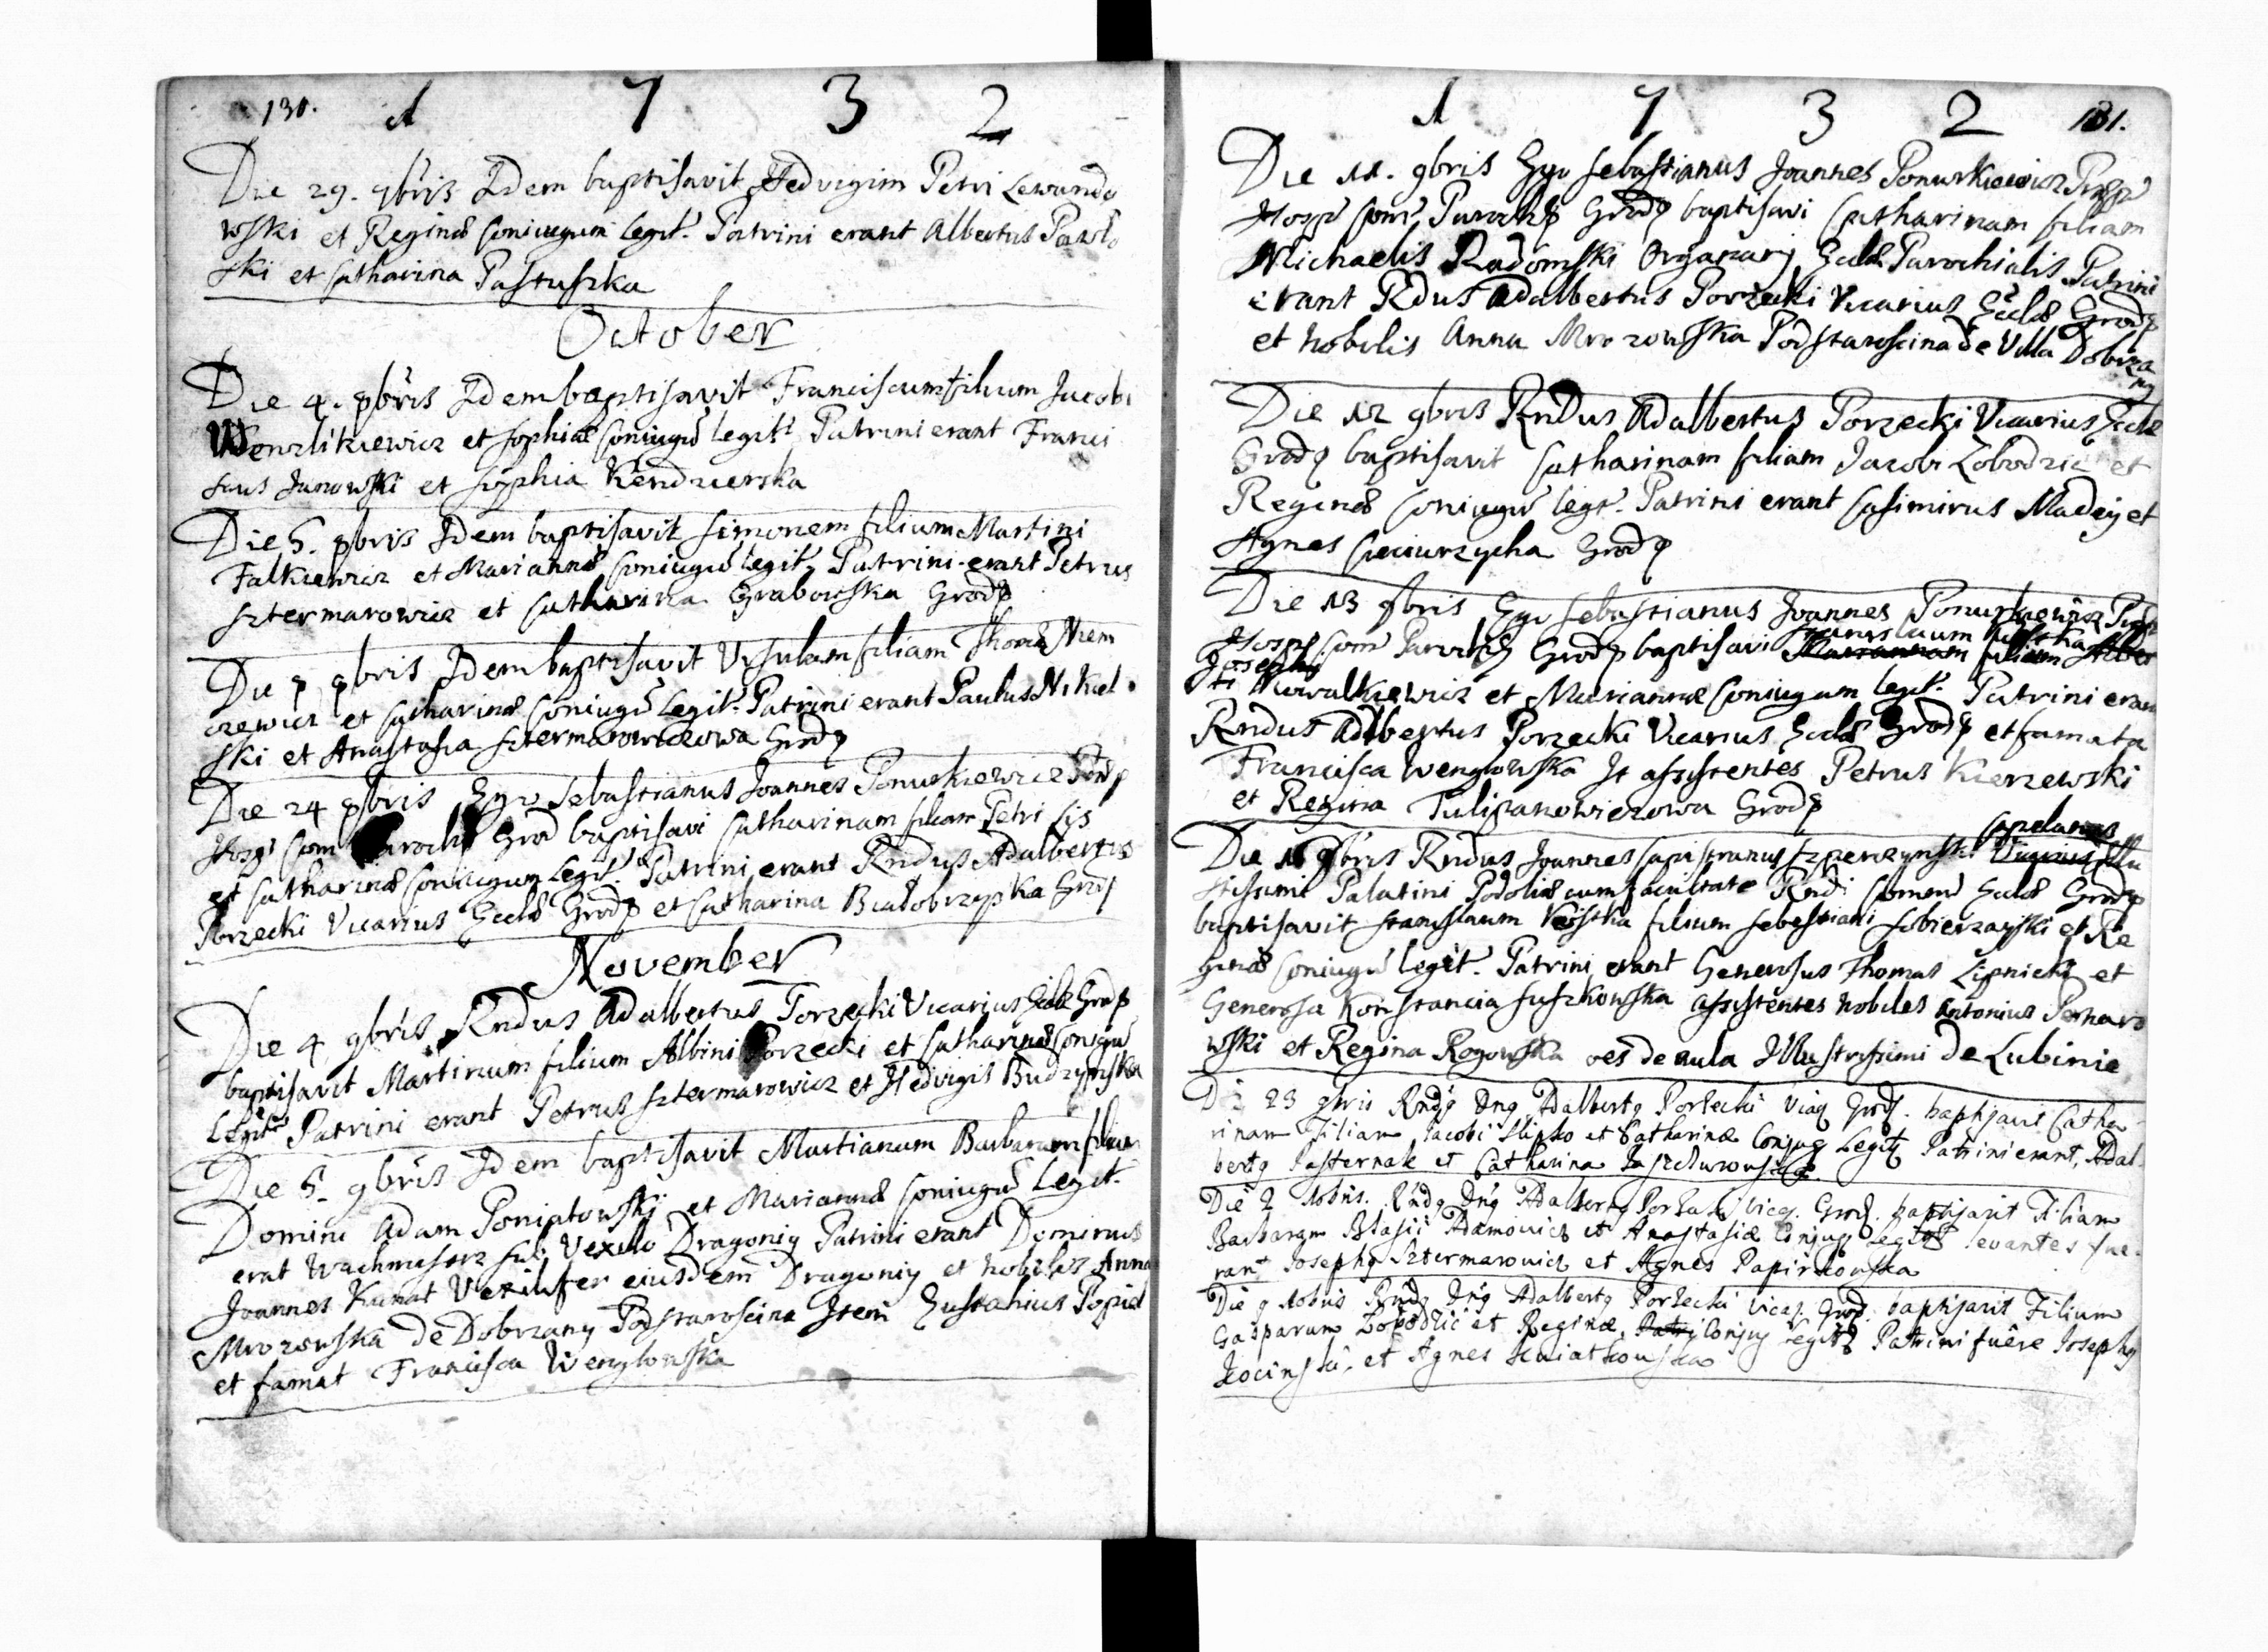 130. A 1 7 3 2
Die 29. 7bris Idem baptisavit Hedvigim Petri Lewando
wski et Reginæ Coniugum Legit. Patrini erant Albertus Pawlo
ski et Catharina Pastuszka
October
Die 4. 8bris Idem baptisavit Franciscum filium Jacobi
Wenzlikiewicz et Sophiæ Coniugũ legit. Patrini erant Franci
scus Janowski et Sophia Kendzierska
Die 5. 8bris Idem baptisavit Simonem filium Martini
Falkiewicz et Mariannæ Coniugũ legit. Patrini erant Petrus
Sztermarowicz et Catharina Grabowska Grod
Die 9 8bris Idem baptisavit Vrsulam filiam Thomæ Niem
czewicz et Catharinæ Coniugũ Legit. Patrini erant Paulus Nikiel
ski et Anastasia Sztermarowiczowa Grod
Die 24 8bris Ego Sebastianus Joannes Ponurkiewicz
Hosp Com Paroch Grod baptisavi Catharinam filiam Petri Lis
et Catharinæ Coniugum Legit. Patrini erant Rndus Adalbertus
Porzecki Vicarius Eccl Grod et Catharina Białobrzyska Grod
November
Die 4 9bris Rndus Adalbertus Porzecki Vicarius Eccl Grod
baptisavit Martinum filium Albini Porzecki et Catharinæ Coniugũ
Legit Patrini erant Petrus Sztermarowicz et Hedvigis Budzynska
Die 5. 9bris Idem baptisavit Martianum Barbaram filiam
Domini Adam Poniatowski et Mariannæ Coniugũ Legit.
erat Wachmistrz sub Vexillo Dragoniy Patrini erant Dominus
Joannes Kunat Vexilifer eiusdem Dragoniy et Nobiles Anna
Mrozowska de Dobrzany Podstaroscina Item Eustahius Popiel
et famat Francisca Wenglowska
A 1 7 3 2 131.
Die 11. 9bris Ego Sebastianus Joannes Ponurkiewicz
Hosp Com Paroch Grod baptisavi Catharinam filiam
Michaelis Radomski Organarij Eccl Parochialis Patrini
erant Rdus Adalbertus Porzecki Vicarius Eccl Grod
et Nobilis Anna Mrozowska Podstaroscina de Villa Dobrza
ny
Die 12 9bris Rndus Adalbertus Porzecki Vicarius Eccl
Grod baptisavit Catharinam filiam Jacobi Lobodzic et
Reginæ Coniugũ legit. Patrini erant Casimirus Madey et
Agnes Cieciurzycha Grod
Die 13 9bris Ego Sebastianus Joannes Ponurkiewicz
Stanislaum Kostka
Hosp Com Paroch Grod baptisavi Mariannam filiam Alber
Josephi
ti Kowalkiewicz et Mariannæ Coniugum legit. Patrini erant
Rndus Adlbertus Porzecki Vicarius Eccl Grod et famata
Francisca Wenglowska It assistentes Petrus Kierzewski
et Regina Tulipanowiczowa Grod
Capelanus
Die 16 9bris Rndus Joannes Capistranus Vicarius Illu
strissimi Palatini Podoliæ cum facultate Rndi Comend Eccl Grod
baptisavit Stanislaum Kostka filium Sebastiani Sobierzayski et Re
ginæ Coniugũ legit. Patrini erant Generosus Thomas Lipnicki et
Generosa Konstancia Suszkowska assistentes Nobiles Antonius Pernaro
wski et Regina Rogowska oes de aula Illustrissimi de Lubinie
Die 23 9bris Rndg Dng Adalbertg Porzecki Vicag Grod. baptisavit Catha
rinam Filiam Jacobi Slipko et Catharinæ Conjug Legit Patrini erant, Adal
bertg Pasternak et Catharina Jaszczurowska
Die 2 Xobris. Rndg Dng Adalbertg Porzecki Vicag. Grod. baptisavit Filiam
Barbaram Blasii Adamowicz et Anastasiæ Conjug Legit levantes fue
rant Josephg Sztermarowicz et Agnes Papirkowska
Die 9 Xobris Rndg Dng Adalbertg Porzecki Vicag. Grod. baptisavit Filium
Gasparum Lobodzic et Reginæ, Patri Conjug Legit Patrini fuere Josephg
Kocinski, et Agnes Kwiatkowska